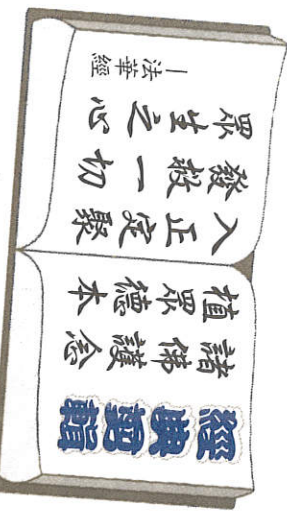 經典
諸佛護念
植眾德本
入正定聚
發救一切
眾生之心
—法華經